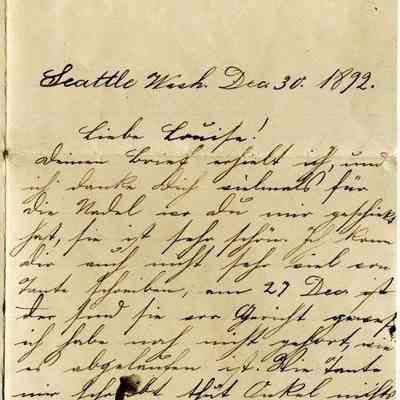 Seattle Wash. Dec 30. 1892.
Liebe Louise!
Deinen Brief erhielt ich, und
ich danke Dich vielmals für
die Nadel wo du mir geschickt
hast, sie ist sehr schön. Ich kann
dir auch nicht sehr viel von
Tante schreiben, am 27 Dec ist
der sind sie vor Gericht gewesen
ich habe noch nicht gehört, wie
es abgelaufen ist. Wie Tante
mir schreibt thut Onkel nichts